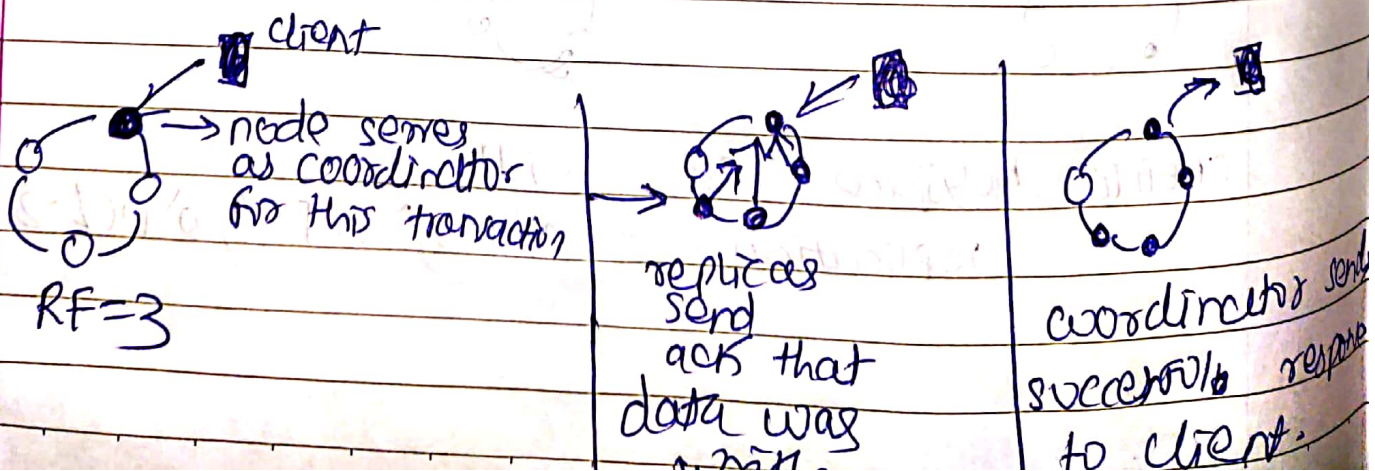 client
→ node serves
as coordinator
for this transaction
RF=3
replicas
send
ack that
data was
coordinator send
successfulb respone
to client.